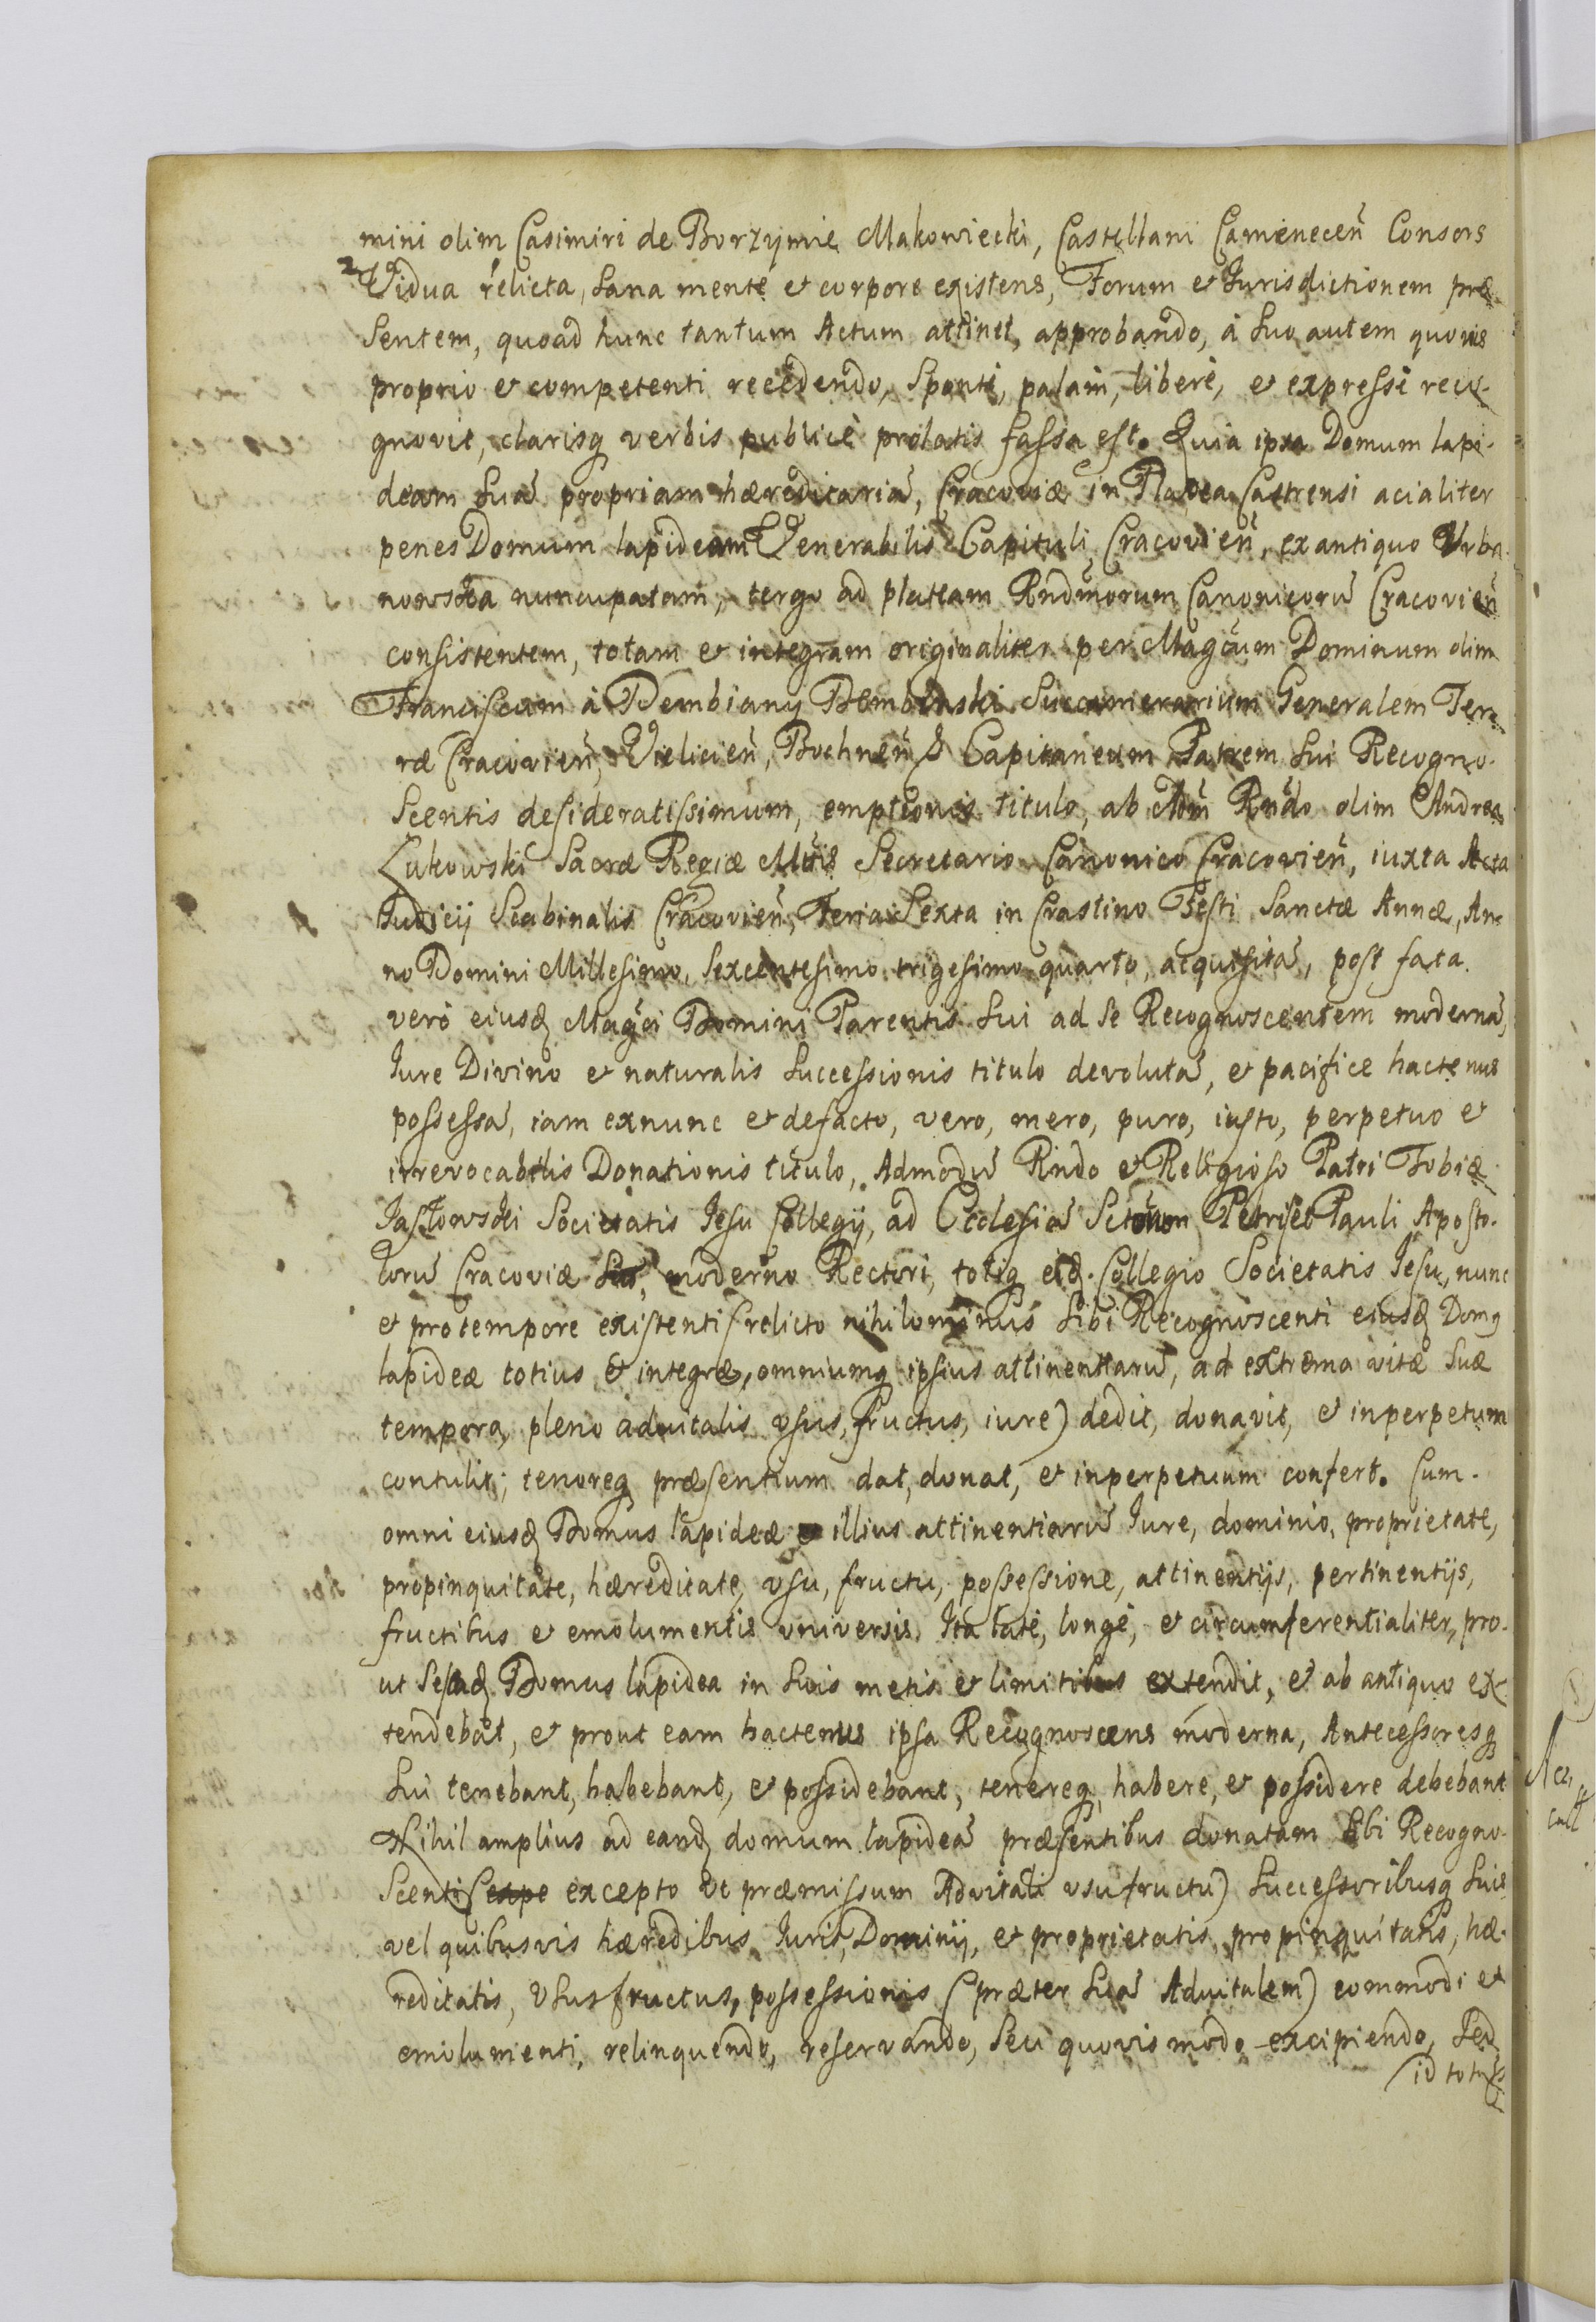 mini olim Casimiri de Borzymie Makowiecki, Castellani Camenecen̄ Consors
2 Vidua relicta, sana mente et corpore existens, Forum et Jurisdictionem præ-
sentem, quoad hunc tantum Actum attinet, approbando, à suo autem quovis
proprio et competenti recedendo, sponte, palam, liberè, et expressè reco-
gnovit, clarisq verbis publicè prolatis fassa est. Quia ipsa Domum lapi-
deam suā propriam hæreditariā, Cracoviæ in Platea Castrensi acialiter
penes Domum lapideam Venerabilis Capituli Cracovien̄, ex antiquo Urba-
nowska nuncupatam, tergo ad plateam Rndmorum Canonicorū Cracovien̄
consistentem, totam et integram originaliter per Magcum Dominum olim
Franciscum à Dembiany Dembinski Succamerarium Generalem Ter-
ræ Cracovien̄, Vielicien̄, Bochnen̄ & Capitaneum Patrem sui Recogno-
scentis desideratissimum, emptionis titulo, ab Adm̄ Rndo olim Andrea
Zukowski Sacræ Regiæ Mttis Secretario Canonico Cracovien̄, iuxta Acta
Judicij Scabinalis Cracovien̄, Feria Sexta in Crastino Festi Sanctæ Annæ, An-
no Domini Millesimo, Sexcentesimo trigesimo quarto, acquisitā, post fata
verò eiusd Magci Domini Parentis sui ad se Recognoscentem modernā,
Jure Divino et naturalis successionis titulo devolutā, et pacifice hactenus
possessā, iam exnunc et defacto, vero, mero, puro, iusto, perpetuo et
irrevocabilis Donationis titulo, Admodū Rndo et Religioso Patri Tobiæ
Jastowski Societatis Jesu Collegij, ad Ecclesiā Sctorum Petri et Pauli Aposto-
lorū Cracoviæ moderno Rectori, totiq eid. Collegio Societatis Jesu, nunc
et pro tempore existenti (relicto nihilominus sibi Recognoscenti eiusd Domq
lapideæ totius et integræ, omniumq ipsius attinentiarū, ad extrema vitæ suæ
tempora, pleno advitalis usus, fructus, iure) dedit, donavit, et inperpetuum
contulit; tenoreq præsentium dat, donat, et inperpetuum confert. Cum
omni eiusd Domus lapideæ et illius attinentiarū Jure, dominio, proprietate,
propinquitate, hæreditate, usu, fructu, possessione, attinentijs, pertinentijs,
fructibus et emolumentis universis. Ita latè, longè, et circumferentialiter, pro-
ut sesead Domus lapidea in suis metis et limitibus extendit, et ab antiquo ex-
tendebat, et prout eam hactenus ipsa Recognoscens moderna, Antecessoresq
sui tenebant, habebant, et possidebant, tenereq, habere, et possidere debebant
Nihil amplius ad eand domum lapideā præsentibus donatam sibi Recogno-
scenti (exepe excepto ut præmissum Advitali usufructu) successoribusq suis
vel quibusvis hæredibus Juris, Dominij, et proprietatis, propinquitatis, hæ-
reditatis, Usus fructus, possessionis (præter suā Advitalem) commodi et
emolumenti, relinquendo, reservando, seu quovis modo excipiendo, Sed
id totū